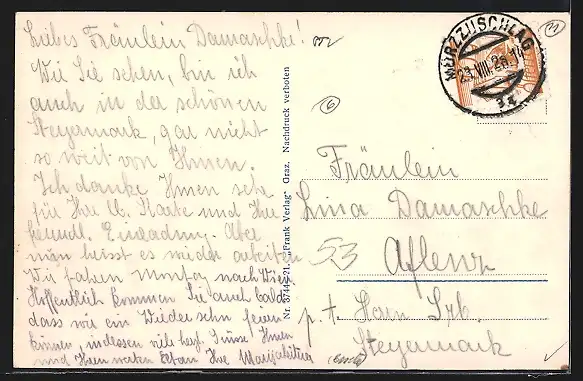 Liebes Fräulein Damaschke!
Wie Sie sehen, bin ich
auch in der schönen
Steyermark, gar nicht
so weit von Ihnen.
Ich danke Ihnen sehr
für Ihre lb. Karte und Ihre
freundl. Einladung. Aber
nun heisst es wieder arbeiten
Wir fahren Montag nach Wien
Hoffentlich kommen Sie auch bald,
dass wir ein Wiedersehn feiern
können, indessen viele herzl. Grüsse Ihnen
und Ihren werten Eltern Ihre
Nr. 37449-21. "Frank Verlag" Graz. Nachdruck verboten
MÜRZZUSCHLAG
23.VIII.26
Fräulein
Lina Damaschke
53
Aflenz
p. A. Herrn
Steyermark